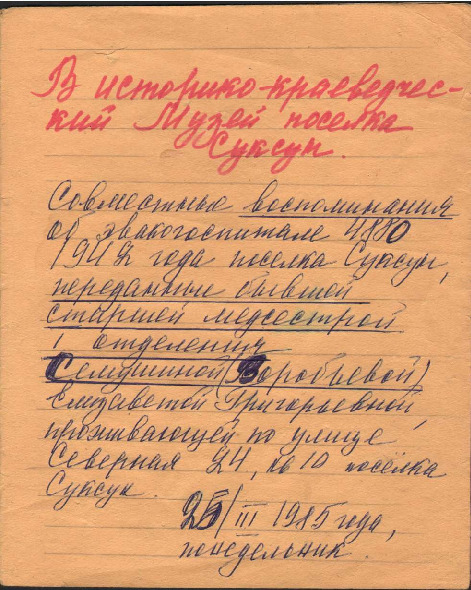 В историко-краеведчес-
кий Музей поселка
Суксун.
Совместные воспоминания
об эвакогоспитале 4880
1942 года поселка Суксун,
переданные бывшей
старшей медсестрой
1 отделения
Семушиной (Воробьевой)
Елизаветой Григорьевной,
проживающей по улице
Северная 24, кв 10 посёлка
Суксун.
25/III 1985 года,
понедельник.